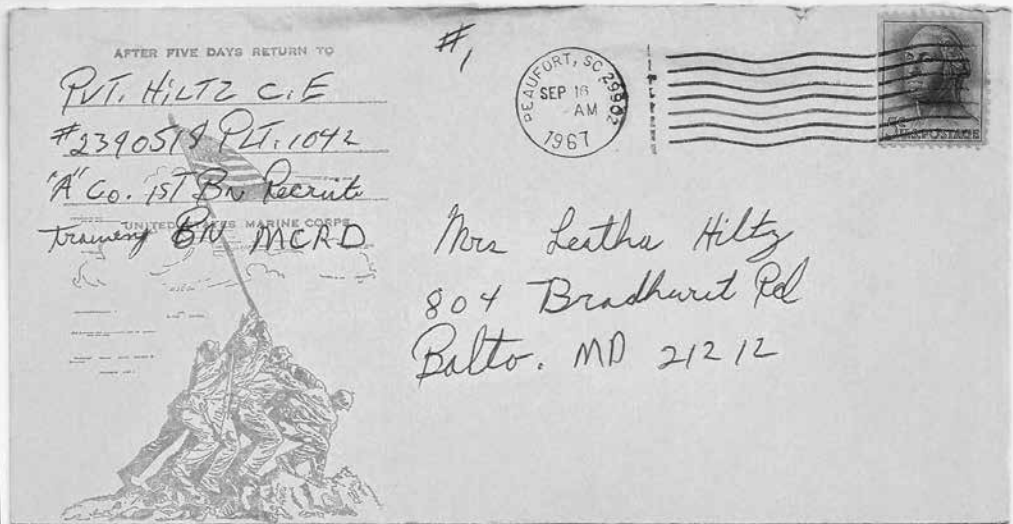 AFTER FIVE DAYS RETURN TO
PVT. HILTZ C.E
#2390518 PLT. 1042
"A" Co. 1ST BN Recruit
UNITED STATES MARINE CORPS
Training BN MCRD
#1
BEAUFORT, SC 29902
SEP 16
AM
1967
U.S. POSTAGE
Mrs Leatha Hiltz
804 Bradhurst Rd
Balto. MD 21212